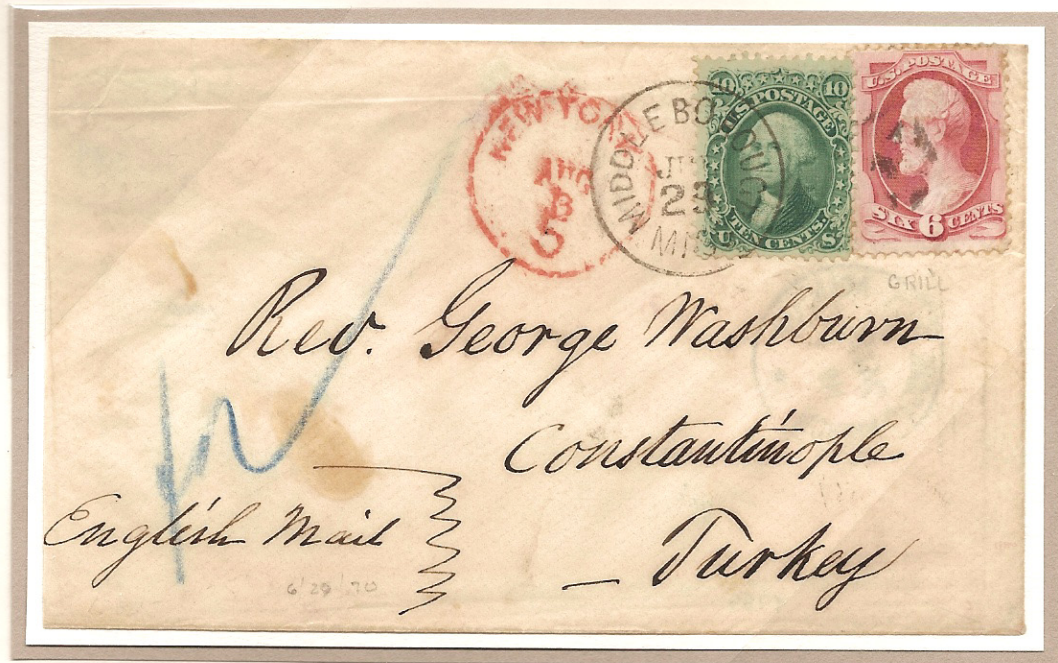 NEW YORK
AUG
3
MIDDLEBOROUGH
29
10 10
U.S. POSTAGE
TEN CENTS.
U. S.
U.S. POSTAGE
SIX 6 CENTS
GRILL
Rev. George Washburn
Constantinople
English Mail
Turkey
6/29/70